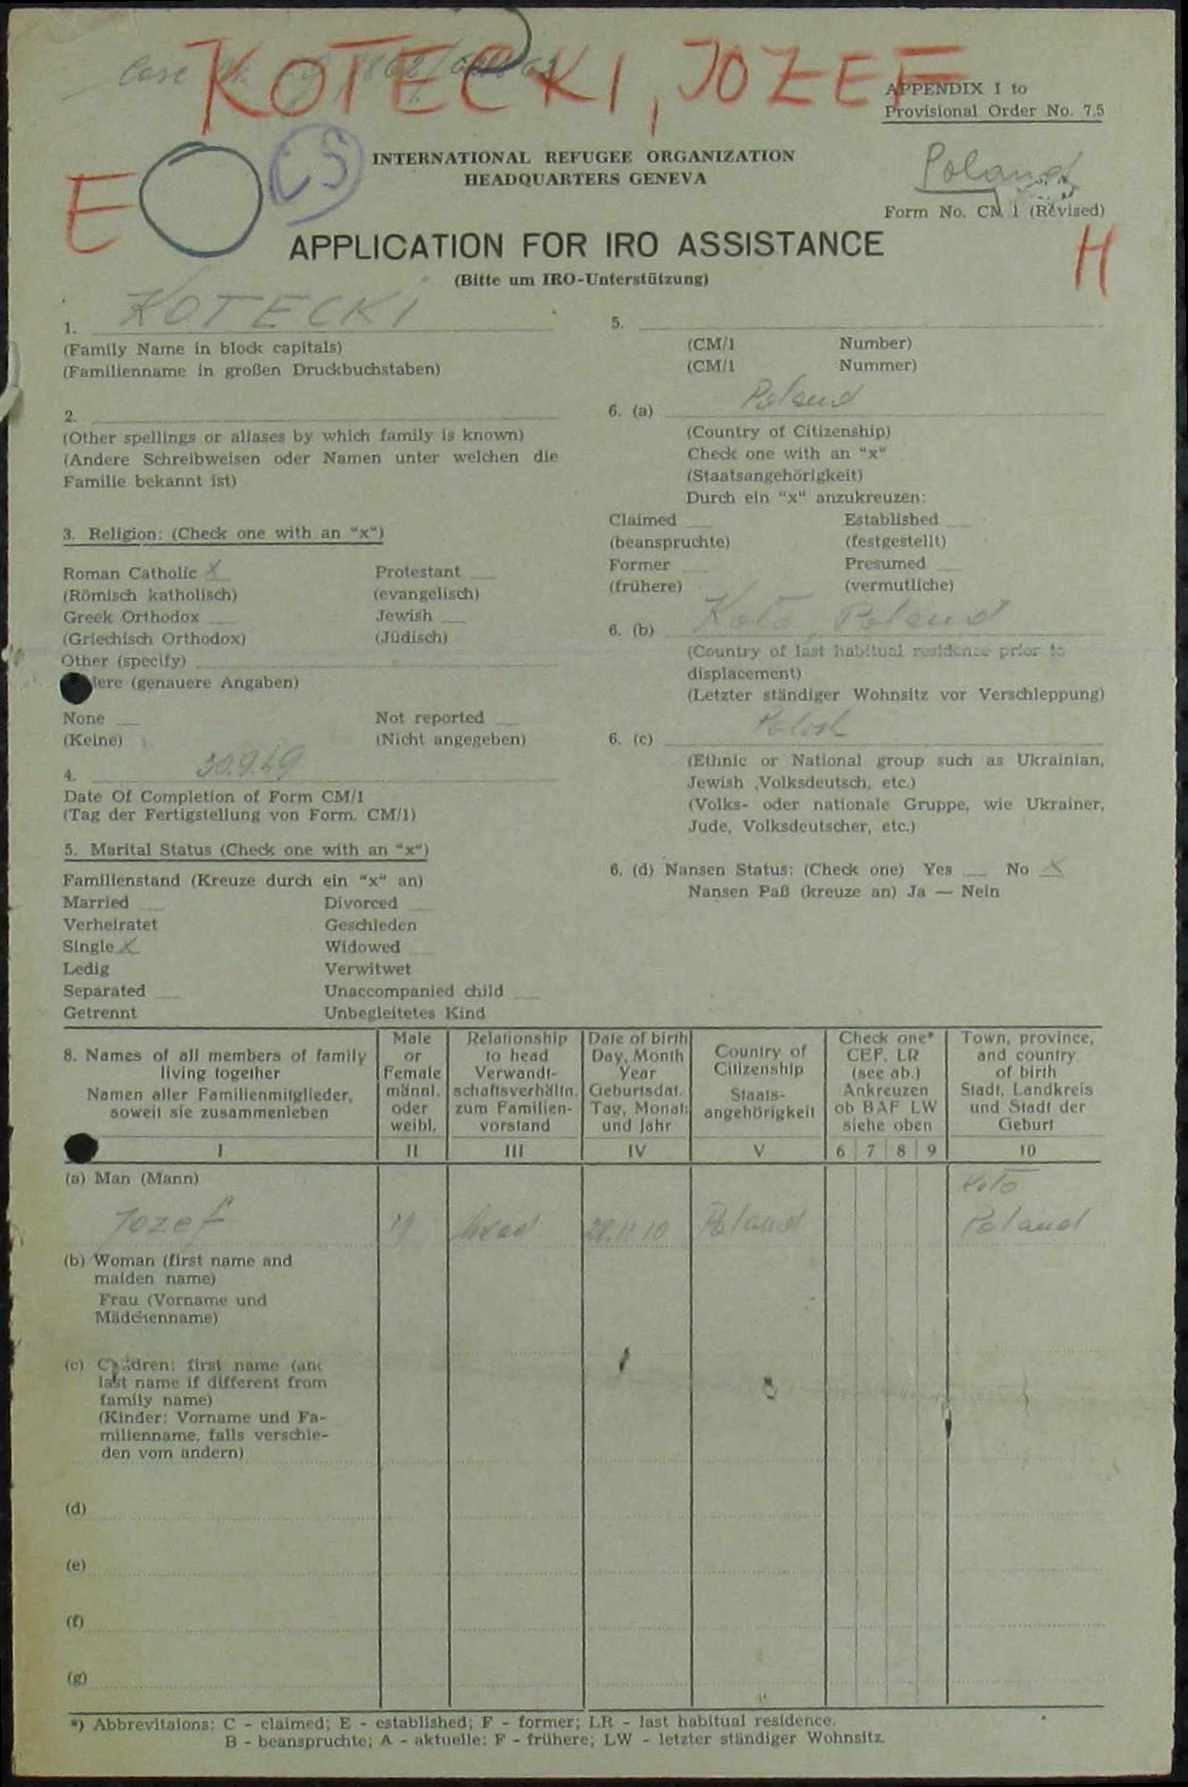 KOTECKI, JOZEF
Case
APPENDIX I to
Provisional Order No. 7.5
CS
INTERNATIONAL REFUGEE ORGANIZATION
HEADQUARTERS GENEVA
Poland
E
Form No. CM 1 (Revised)
APPLICATION FOR IRO ASSISTANCE
H
(Bitte um IRO-Unterstützung)
1. KOTECKI
(Family Name in block capitals)
(Familienname in großen Druckbuchstaben)
2.
(Other spellings or aliases by which family is known)
(Andere Schreibweisen oder Namen unter welchen die
Familie bekannt ist)
3. Religion: (Check one with an "x")
Roman Catholic X Protestant
(Römisch katholisch) (evangelisch)
Greek Orthodox Jewish
(Griechisch Orthodox) (Jüdisch)
Other (specify)
lere (genauere Angaben)
None Not reported
(Keine) (Nicht angegeben)
4. 30.9.49
Date Of Completion of Form CM/1
(Tag der Fertigstellung von Form. CM/1)
5. Marital Status (Check one with an "x")
Familienstand (Kreuze durch ein "x" an)
Married Divorced
Verheiratet Geschieden
Single X Widowed
Ledig Verwitwet
Separated Unaccompanied child
Getrennt Unbegleitetes Kind
5.
(CM/1 Number)
(CM/1 Nummer)
6. (a) Poland
(Country of Citizenship)
Check one with an "x"
(Staatsangehörigkeit)
Durch ein "x" anzukreuzen:
Claimed Established
(beanspruchte) (festgestellt)
Former Presumed
(frühere) (vermutliche)
6. (b) Koło, Poland
(Country of last habitual residence prior to
displacement)
(Letzter ständiger Wohnsitz vor Verschleppung)
6. (c) Polish
(Ethnic or National group such as Ukrainian,
Jewish ,Volksdeutsch, etc.)
(Volks- oder nationale Gruppe, wie Ukrainer,
Jude, Volksdeutscher, etc.)
6. (d) Nansen Status: (Check one) Yes No X
Nansen Paß (kreuze an) Ja — Nein
8. Names of all members of family
living together
Namen aller Familienmitglieder,
soweit sie zusammenleben
Male
or
Female
männl.
oder
weibl.
Relationship
to head
Verwandt-
schaftsverhältn.
zum Familien-
vorstand
Date of birth
Day, Month
Year
Geburtsdat.
Tag, Monat:
und Jahr
Country of
Citizenship
Staats-
angehörigkeit
Check one*
CEF. LR
(see ab.)
Ankreuzen
ob BAF LW
siehe oben
Town, province,
and country
of birth
Stadt, Landkreis
und Stadt der
Geburt
I II III IV V 6 7 8 9 10
(a) Man (Mann) Koło
Jozef M head 28.11.10 Poland Poland
(b) Woman (first name and
maiden name)
Frau (Vorname und
Mädchenname)
(c) Children: first name (and
last name if different from
family name)
(Kinder: Vorname und Fa-
milienname, falls verschie-
den vom andern)
(d)
(e)
(f)
(g)
*) Abbrevitaions: C - claimed; E - established; F - former; LR - last habitual residence.
B - beanspruchte; A - aktuelle: F - frühere; LW - letzter ständiger Wohnsitz